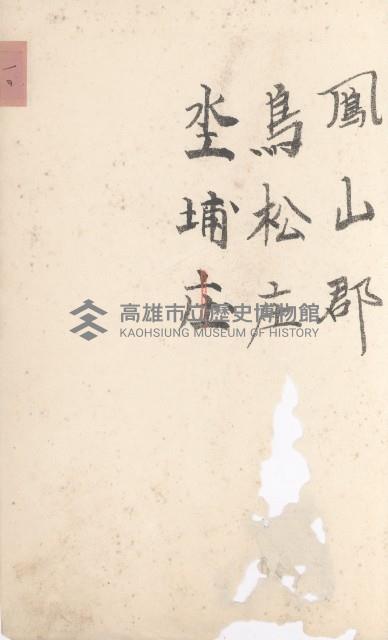 鳳山郡
鳥松庄
埊埔庄
高雄市立歷史博物館
KAOHSIUNG MUSEUM OF HISTORY